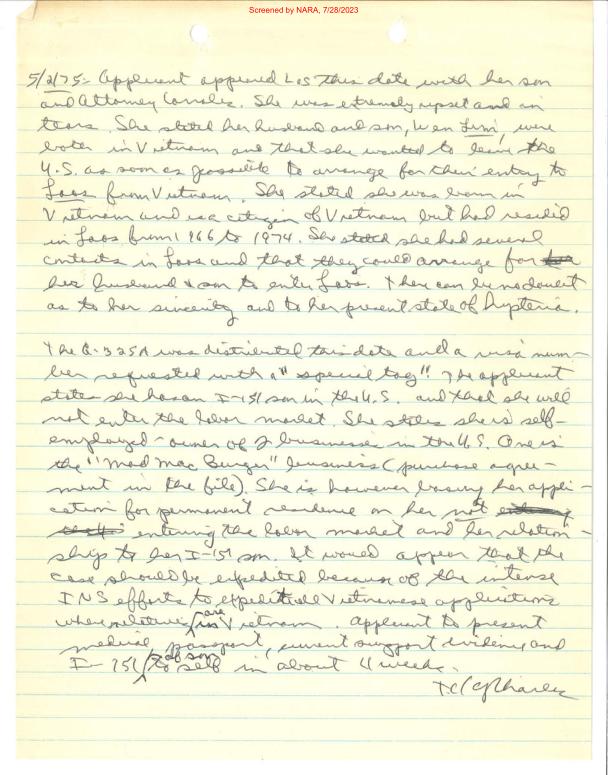 Screened by NARA, 7/28/2023
5/2/75 - Applicant appeared LOS this date with her son
and Attorney Canales. She was extremely upset and in
tears. She stated her husband and son, were
both in Vietnam and that she wanted to leave the
U.S. as soon as possible to arrange for their entry to
Laos from Vietnam. She stated she was born in
Vietnam and is a citizen of Vietnam but had resided
in Laos from 1966 to 1974. She stated she had several
contacts in Laos and that they could arrange for
her husband & son to enter Laos. There can be no doubt
as to her sincerity and to her present state of hysteria.
The G-325A was distributed this date and a visa num-
ber requested with a "special tag" The applicant
states she has an I-151 son in the U.S. and that she will
not enter the labor market. She states she is self-
employed - owner of 2 businesses in the U.S. One is
the "Mad Mac Burger" business (purchase agree-
ment in the file). She is however basing her appli-
cation for permanent residence on her not
entering the labor market and her relation-
ship to her I-151 son. It would appear that the
case should be expedited because of the intense
INS efforts to expedite all Vietnamese applications
where relatives are in Vietnam. Applicant to present
medical, passport, current support evidence and
I-151 of son to self in about 4 weeks.